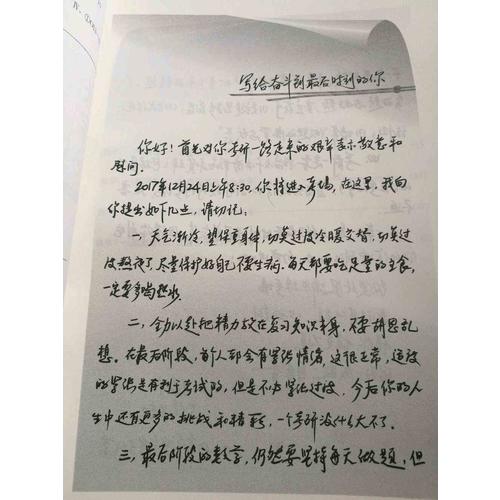 写给奋斗到最后时刻的你
你好！首先对你考研一路走来的艰辛表示敬意和
慰问.
2017年12月24日上午8:30,你将进入考场,在这里,我向
你提出如下几点,请切记:
一、天气渐冷,望保重身体,切莫过度冷暖交替,切莫过
度熬夜了,尽量保护好自己不要生病.每天都要吃足量的主食,
一定要多喝热水.
二、全力以赴把精力放在复习知识本身,不要胡思乱
想.在最后阶段,每个人都会有紧张情绪,这很正常,适度
的紧张是有利于考试的,但是不力紧张过度.今后你的人
生中还有更多的挑战和精彩,一个考研没什么大不了.
三、最后阶段的数学,仍然要坚持每天做题,但